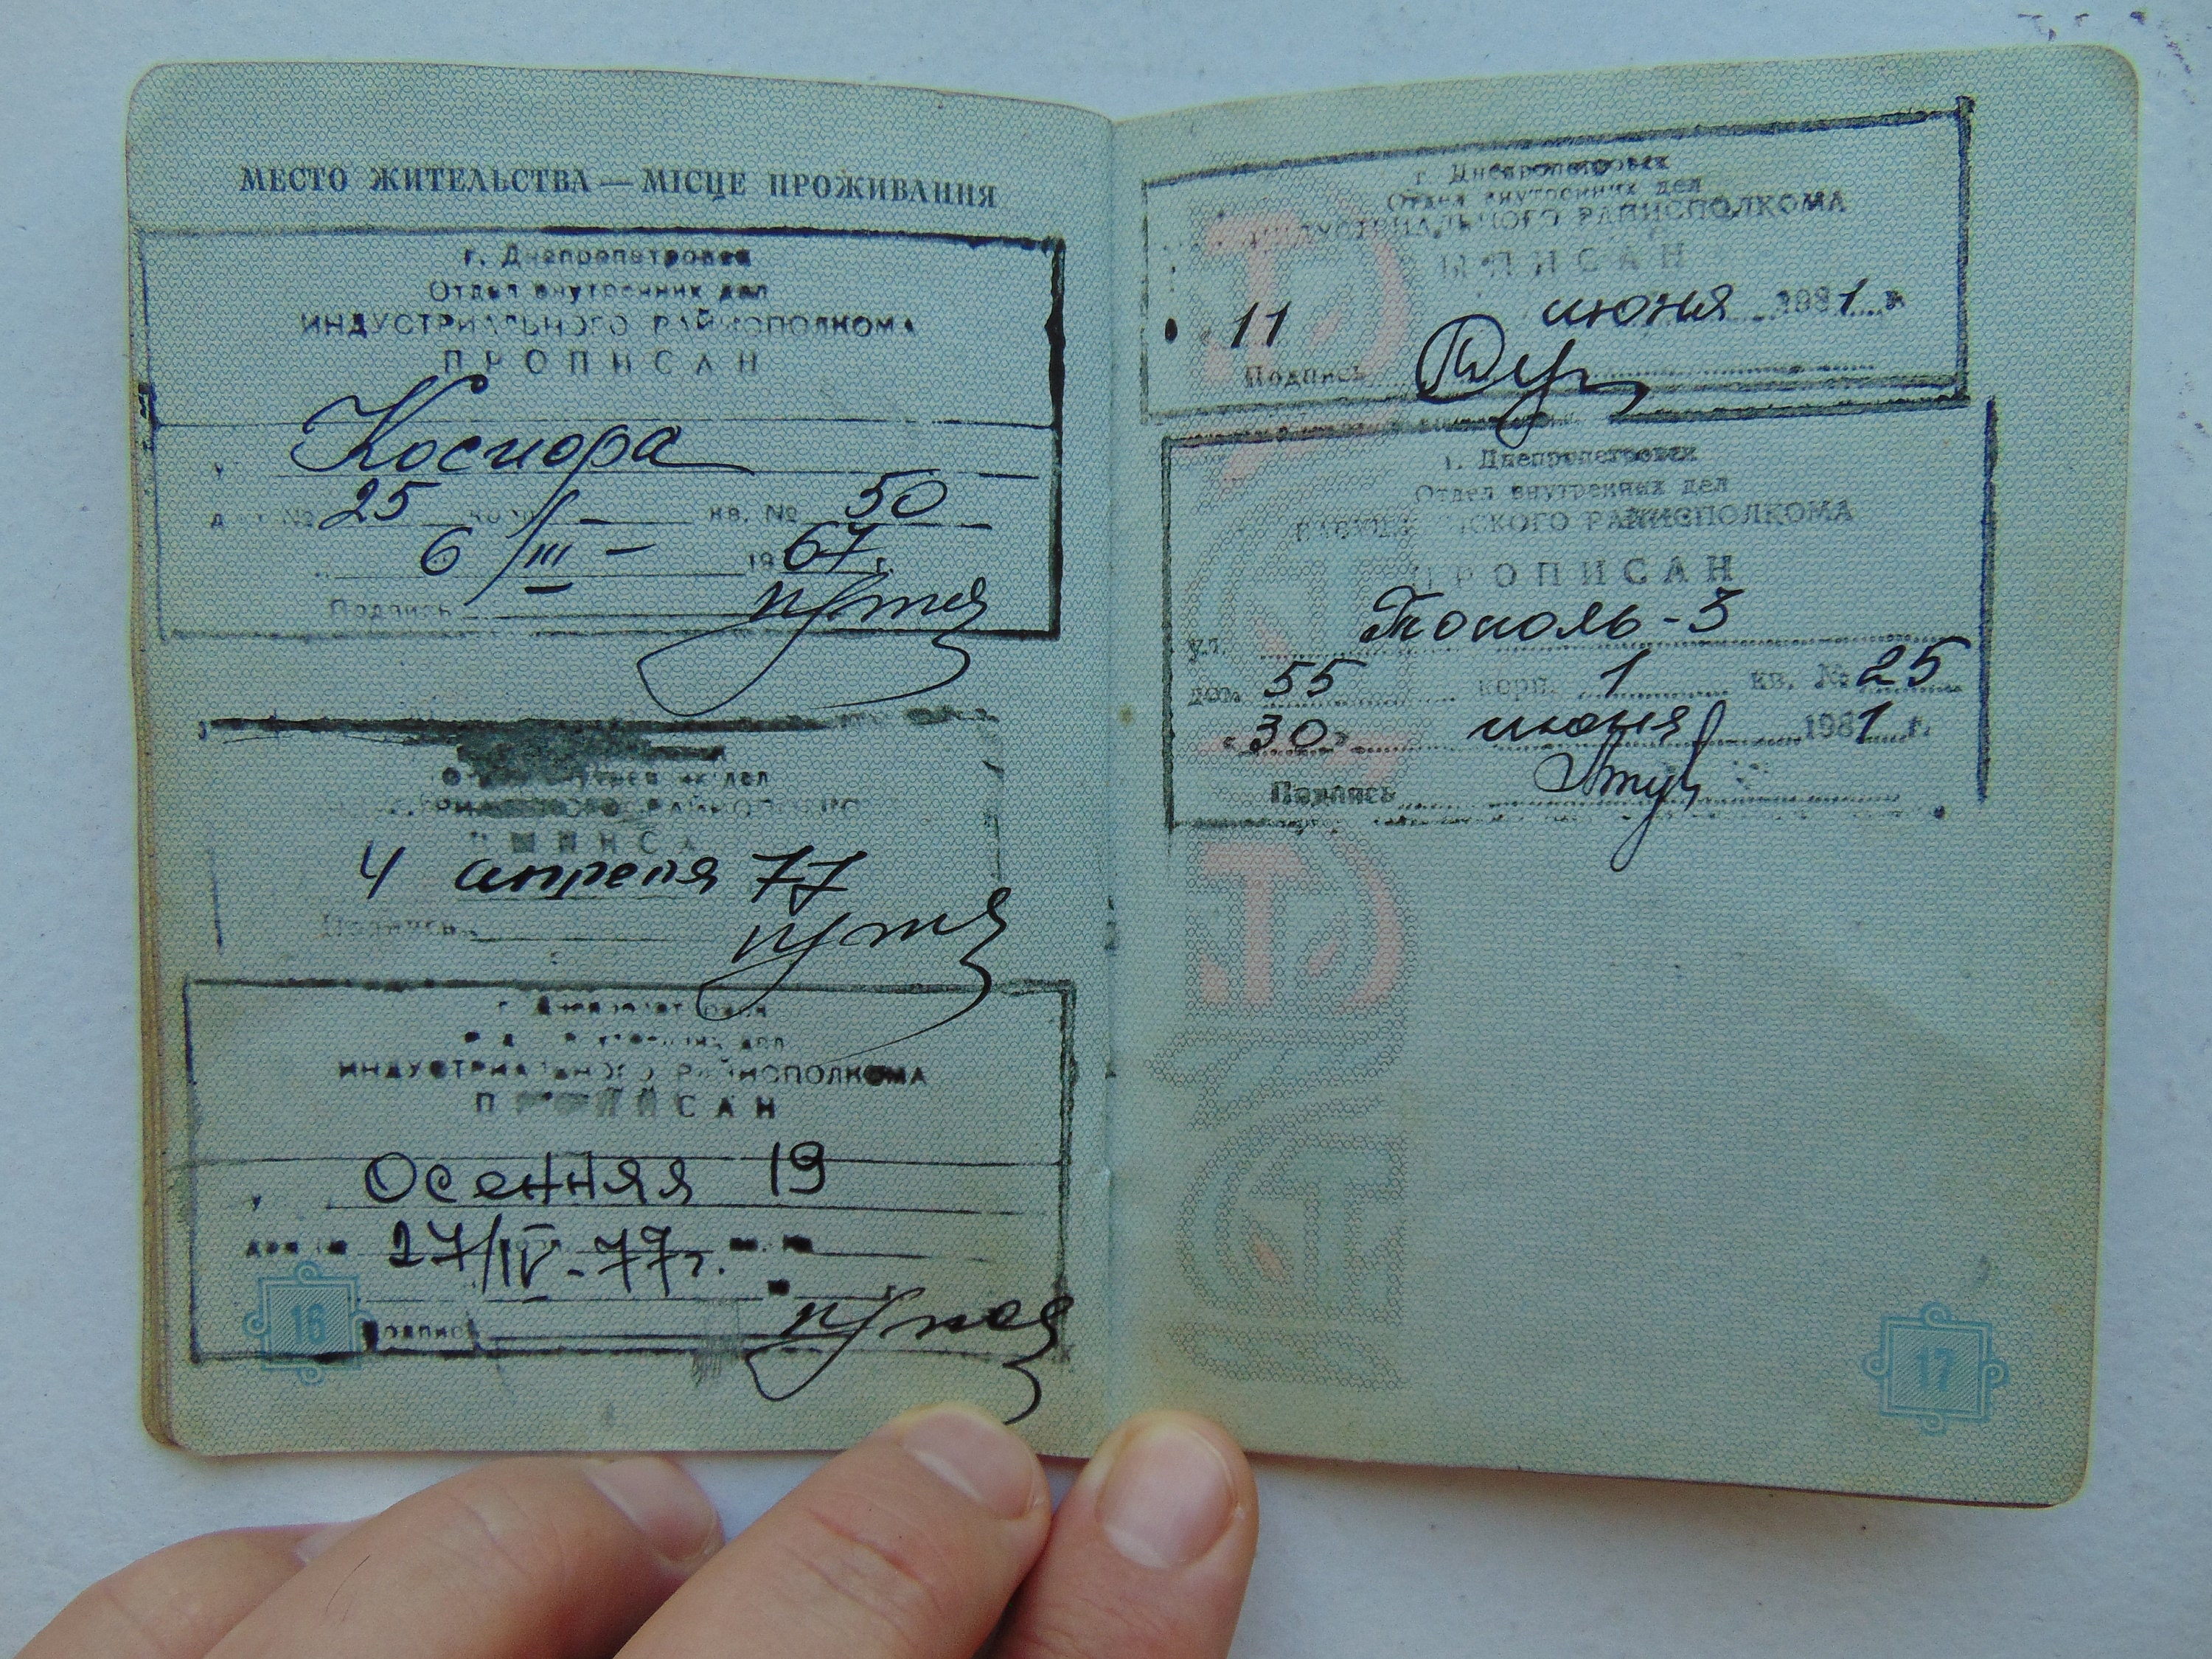 МЕСТО ЖИТЕЛЬСТВА — МІСЦЕ ПРОЖИВАННЯ
г. Днепропетровск
Отдел внутренних дел
ИНДУСТРИАЛЬНОГО РАЙИСПОЛКОМА
ПРОПИСАН
Косиора
25 корп. — кв. № 50
6/III — 1967г.
Подпись
4 апреля 77
Подпись
г. Днепропетровск
внутренних дел
ИНДУСТРИАЛЬНОГО РАЙИСПОЛКОМА
ПРОПИСАН
Осенняя 19
27/IV-77г.
Подпись
16
г. Днепропетровск
Отдел внутренних дел
ИНДУСТРИАЛЬНОГО РАЙИСПОЛКОМА
ВЫПИСАН
11 июня 1981 г.
Подпись
г. Днепропетровск
Отдел внутренних дел
РАЙИСПОЛКОМА
ПРОПИСАН
ул. Тополь-3
дом 55 корп. 1 кв. № 25
«30» июня 1981 г.
Подпись
17